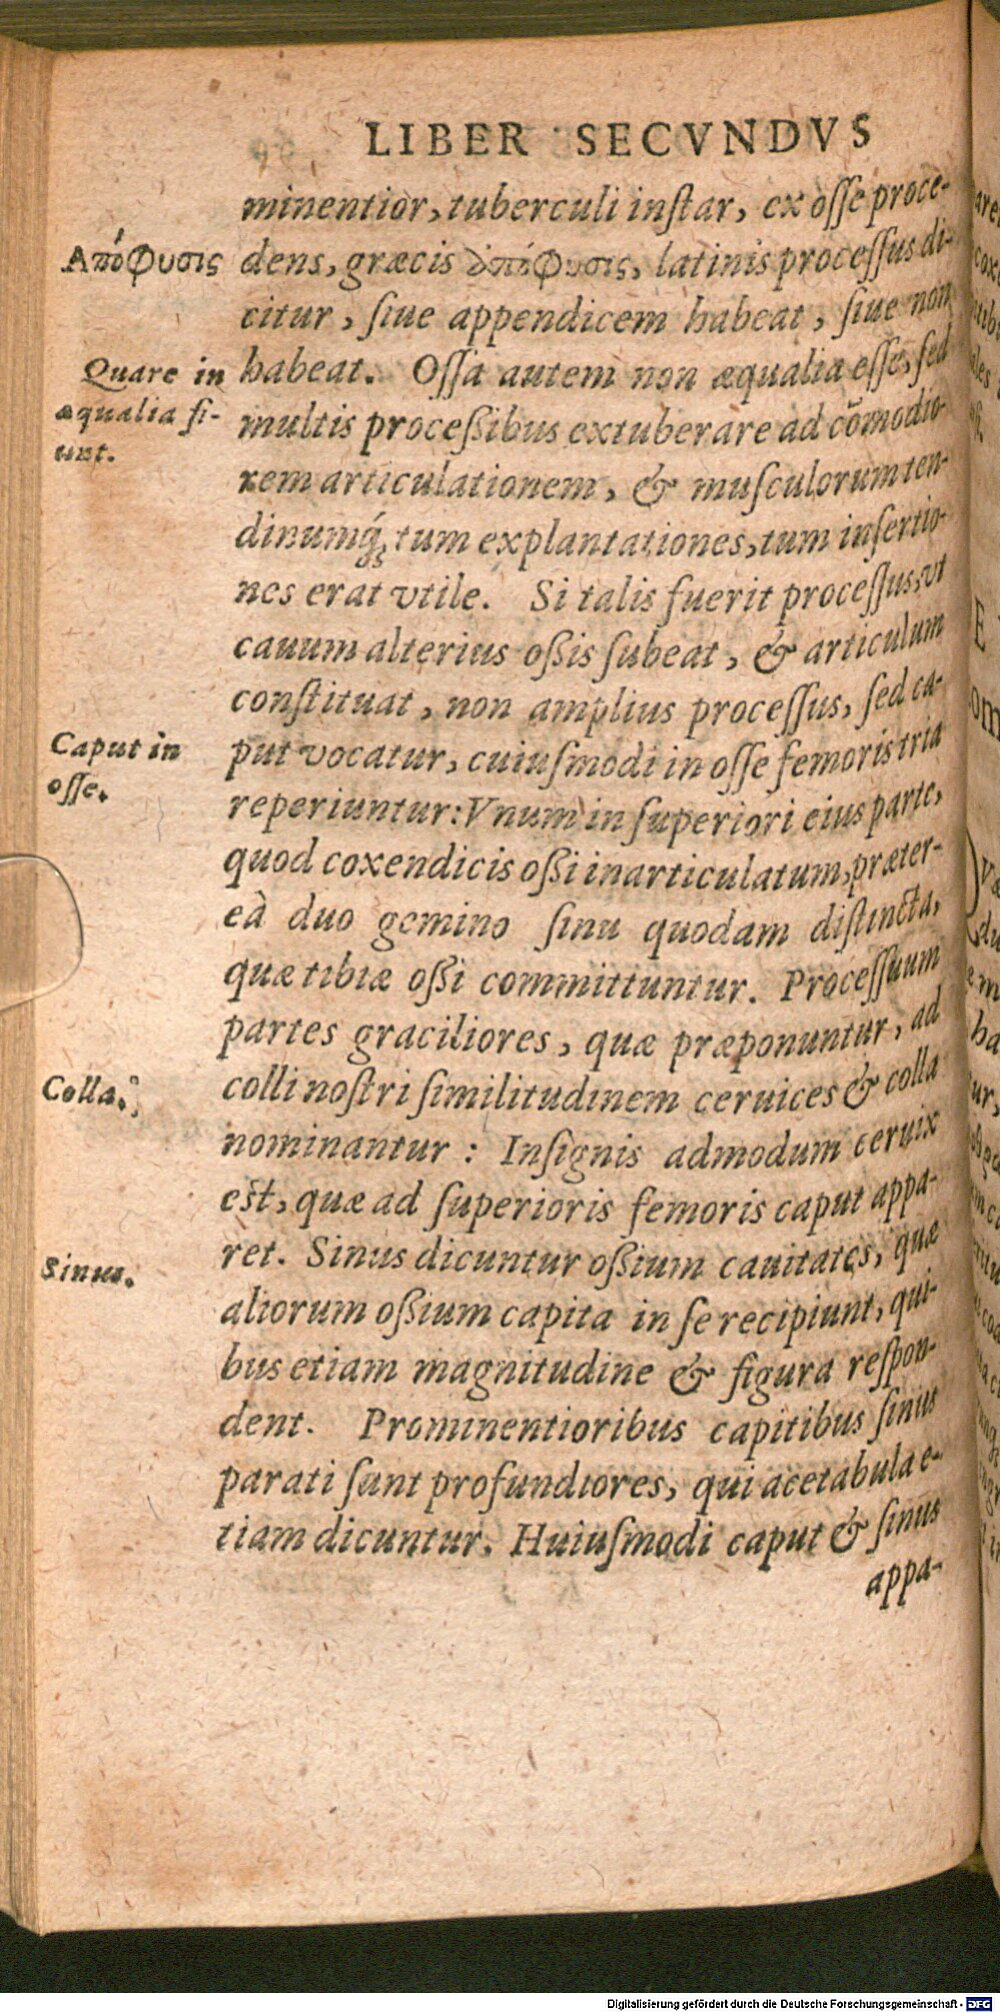 LIBER SECVNDVS
minentior, tuberculi inſtar, ex oſſe proce-
Απόφυσις
dens, græcis ἀπόφυσις, latinis proceſſus di-
citur, ſiue appendicem habeat, ſiue non
Quare in
æqualia fi-
unt.
habeat. Oſſa autem non æqualia eſſe, ſed
multis proceßibus extuberare ad cōmodio-
rem articulationem, & muſculorum ten-
dinumq́ꝫ tum explantationes, tum inſertio-
nes erat vtile. Si talis fuerit proceſſus, vt
cauum alterius oßis ſubeat, & articulum
conſtituat, non amplius proceſſus, ſed ca-
Caput in
oſſe.
put vocatur, cuiuſmodi in oſſe femoris tria
reperiuntur: Vnum in ſuperiori eius parte,
quod coxendicis oßi inarticulatum, præter-
eà duo gemino ſinu quodam diſtincta,
quæ tibiæ oßi committuntur. Proceſſuum
partes graciliores, quæ præponuntur, ad
Colla.
colli noſtri ſimilitudinem ceruices & colla
nominantur: Inſignis admodum ceruix
est, quæ ad ſuperioris femoris caput appa-
Sinus.
ret. Sinus dicuntur oßium cauitates, quæ
aliorum oßium capita in ſe recipiunt, qui-
bus etiam magnitudine & figura reſpon-
dent. Prominentioribus capitibus ſinus
parati ſunt profundiores, qui acetabula e-
tiam dicuntur. Huiuſmodi caput & ſinus
appa-
Digitalisierung gefördert durch die Deutsche Forschungsgemeinschaft - DFG